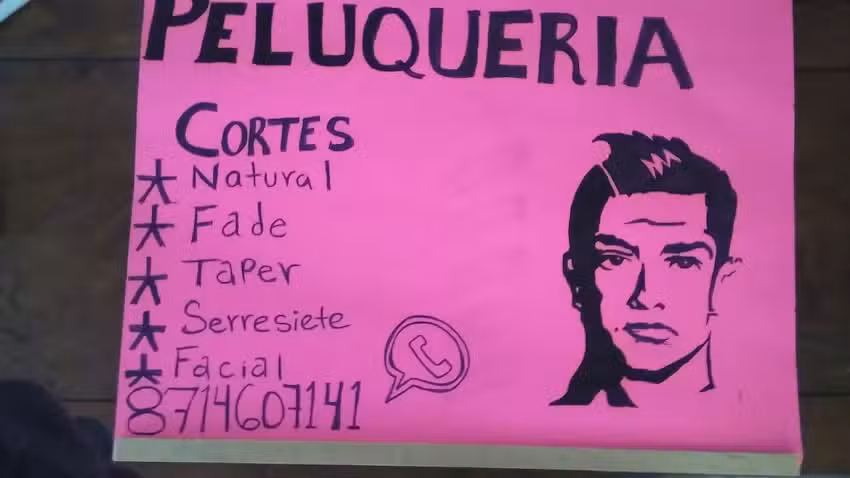 PELUQUERIA
CORTES
* Natural
* Fade
* Taper
* Serresiete
* Facial
8714607141